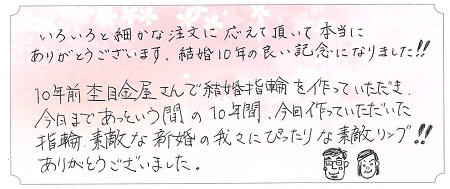 いろいろと細かな注文に応えて頂いて本当に
ありがとうございます。結婚10年の良い記念になりました!!
10年前杢目金屋さんで結婚指輪を作っていただき、
今日まであっという間の10年間、今回作っていただいた
指輪、素敵な新婚の我々にぴったりな素敵リング!!
ありがとうございました。